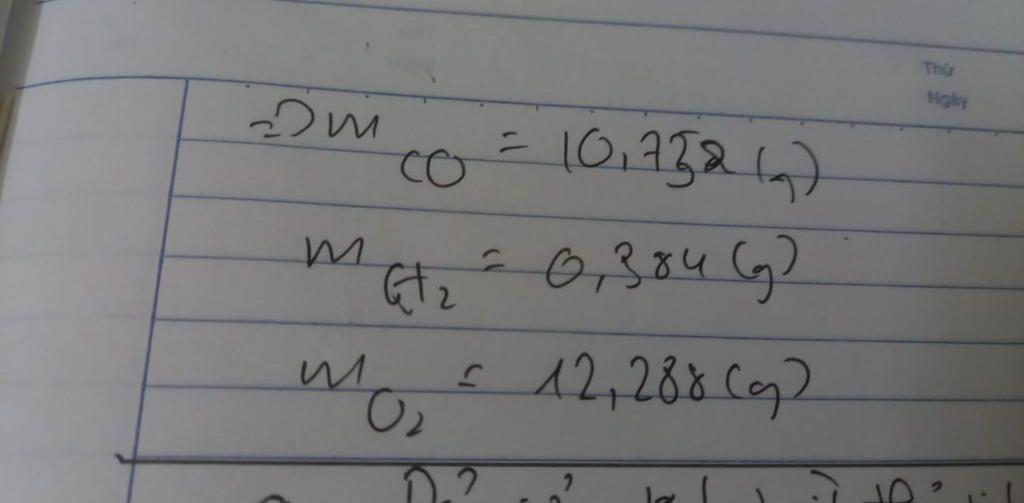 Thứ
Ngày
=> m CO = 10,752 (g)
m H2 = 0,384 (g)
m O2 = 12,288 (g)